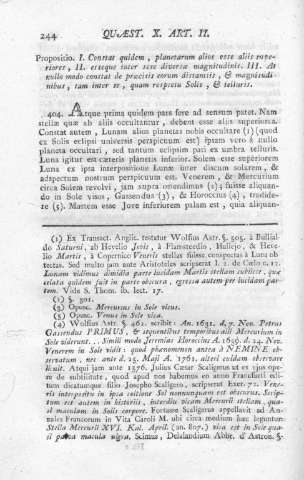 244 QUÆST. X. ART. II.
Propositio. I. Constat quidem, planetarum alios esse aliis superiores,
II. eosque inter sese diversæ magnitudinis. III. At
nullo modo constat de præcisis eorum distantiis, & magnitudinibus,
tam inter se, quam respectu Solis, & telluris.
404. Atque prima quidem pars fere ad sensum patet. Nam
stellæ quæ ab aliis occultantur, debent esse aliis superiores.
Constat autem, Lunam alios planetas nobis occultare (1) (quod
ex Solis eclipsi universis perspicuum est) ipsam vero a nullo
planeta occultari, sed tantum eclipsim pati ex umbra telluris.
Luna igitur est cæteris planetis inferior. Solem esse superiorem
Luna ex ipsa interpositione Lunæ inter discum solarem, &
adspectum nostrum perspicuum est. Venerem, & Mercurium
circa Solem revolvi, jam supra ostendimus (2); fuisse aliquando
in Sole visos, Gassendus (3), & Horoccius (4), tradidere
(5). Martem esse Jove inferiorem palam est, quia aliquan-
(1) Ex Transact. Anglic. testatur Wolfius Astr. §. 505. à Bullialdo
Saturni, ab Hevelio Jovis, à Flamsteedio, Hallejo, & Hevelio
Martis, à Copernico Veneris stellas fuisse conspectas à Luna obtectas.
Sed multo jam ante Aristoteles scripserat l. 2. de Cœlo c.12.
Lunam vidimus dimidia parte incidam Martis stellam subiisse, quæ
celata quidem fuit in parte obscura, egressa autem per lucidam partem.
Vide S. Thom. ib. lect. 17.
(2) §. 301.
(3) Opusc. Mercurius in Sole visus.
(4) Opusc. Venus in Sole visa.
(5) Wolfius Astr. §. 462. scribit: An. 1631. d. 7. Nov. Petrus
Gassendus PRIMUS, & sequentibus temporibus alii Mercurium in
Sole viderunt... Simili modo Jeremias Horoccius A. 1639. d. 24. Nov.
Venerem in Sole vidit: quod phænomenon antea à NEMINE observatum,
nec ante d. 25. Maji A. 1761. alteri cuidam observare
licuit. Atqui jam ante 1576. Julius Cæsar Scaligerus ut ex ejus opere
de subtilitate, quod apud nos habemus eo anno Francfurti editum
dicatumque filio Josepho Scaligero, scripserat Exer. 72. Veneris
interpositu in ipsa coitione Sol nonnunquam est obscurus. Scriptum
est autem in historiis, interdiu visam Mercurii stellam, quasi
maculam in Solis corpore. Fortasse Scaligerus appellavit ad Annales
Francorum in Vita Caroli M. ubi circa medium hæc leguntur:
Stella Mercurii XVI. Kal. April. (an. 807.) visa est in Sole quasi
parva macula nigra. Scimus, Delalandium Abbr. d'Astron. §.